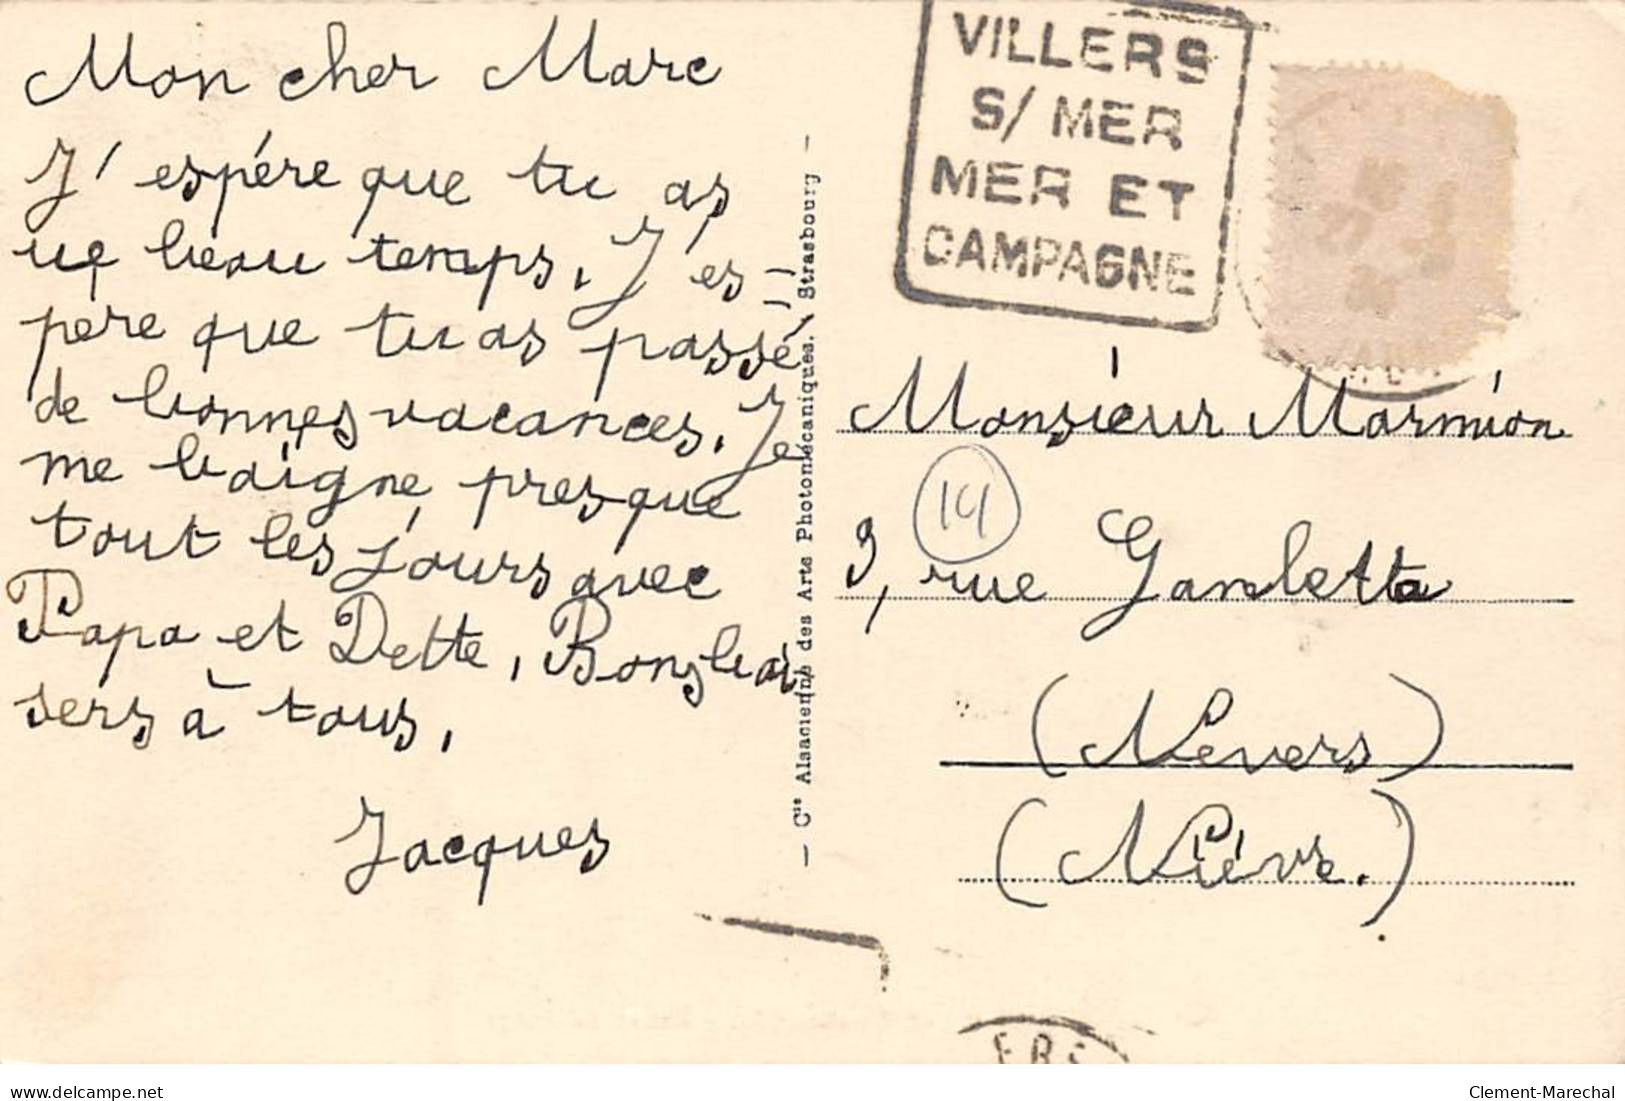 Mon cher Marc
J'espére que tu as
ue beau temps. J'es=
pere que tu as passé
de bonnes vacances. Je
me baigne presque
tout les jours avec
Papa et Dette, Bons bai-
sers à tous.
Jacques
— Cie Alsacienne des Arts Photomécaniques, Strasbourg —
VILLERS
S/ MER
MER ET
CAMPAGNE
Monsieur Marmion
14
9, rue
(Nevers)
(Nièvre.)
ERS
delcampe.net
Clement-Marechal